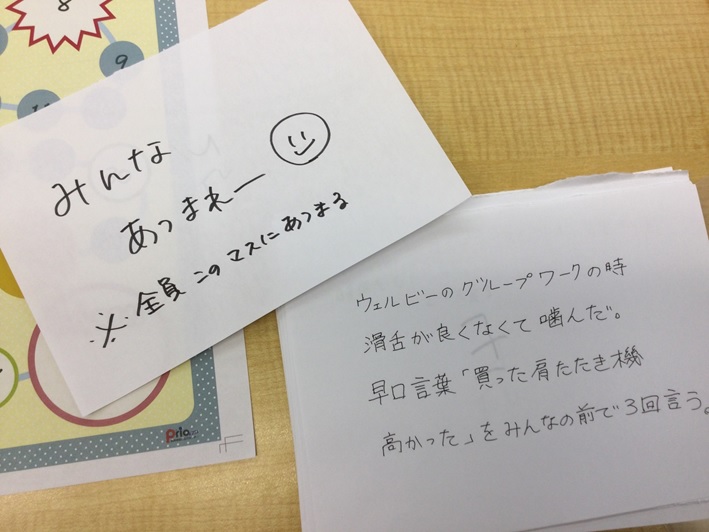 8
9
みんな
あつまれー
※ 全員このマスにあつまる
ウェルビーのグループワークの時
滑舌が良くなくて噛んだ。
早口言葉「買った肩たたき機
高かった」をみんなの前で3回言う。
Prio